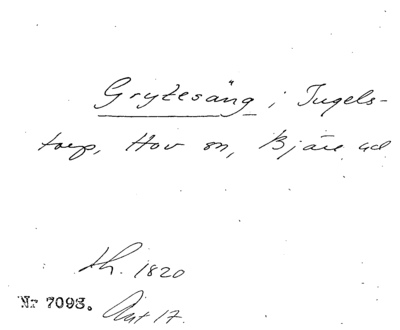 Grytesäng, i Ingels-
torp, Hov sn, Bjäre hd
th. 1820
Nr 7093. Ant 17.